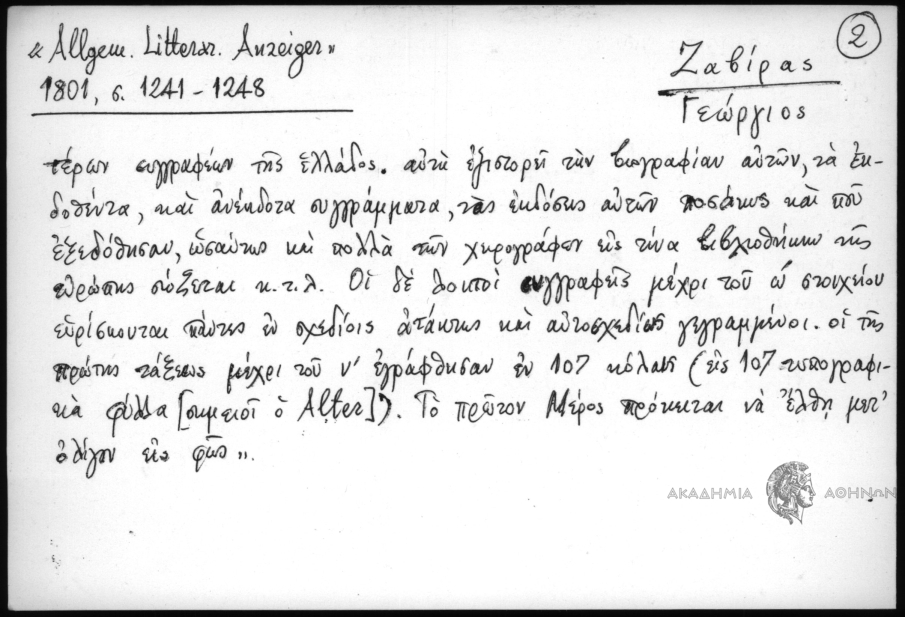 2
« Allgem. Litterar. Anzeiger »
1801, σ. 1241 - 1248
Ζαβίρας
Γεώργιος
τέρων συγγραφέων τῆς Ἑλλάδος. αὐτὴ ἐξιστορεῖ τὴν βιογραφίαν αὐτῶν, τὰ ἐκ-
δοθέντα, καὶ ἀνέκδοτα συγγράμματα, τὰς ἐκδόσεις αὐτῶν ποσάκις καὶ ποῦ
ἐξεδόθησαν, ὡσαύτως καὶ πολλὰ τῶν χειρογράφων εἰς τίνα βιβλιοθήκην τῆς
εὐρώπης σώζεται κ.τ.λ. Οἱ δὲ λοιποὶ συγγραφεῖς μέχρι τοῦ ω στοιχείου
εὑρίσκονται πάντες ἐν σχεδίοις ἀτάκτως καὶ αὐτοσχεδίως γεγραμμένοι. οἱ τῆς
πρώτης τάξεως μέχρι τοῦ ν' ἐγράφθησαν ἐν 107 κόλαις (εἰς 107 τυπογραφι-
κὰ φύλλα [σημειοῖ ὁ Alter]). Τὸ πρῶτον Μέρος πρόκειται νὰ ἔλθῃ μετ'
ὀλίγον εἰς φῶς ».
ΑΚΑΔΗΜΙΑ ΑΘΗΝΩΝ